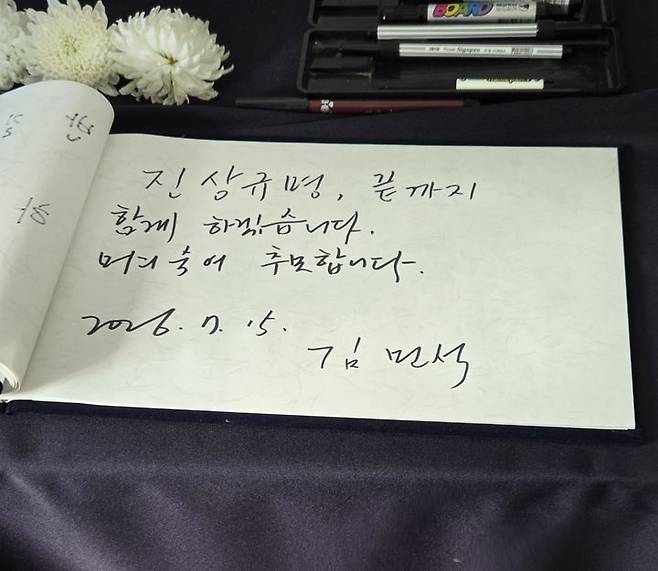 BOARD
진상규명, 끝까지
함께 하겠습니다.
머리숙여 추모합니다.
2026. 7. 15.
김민석